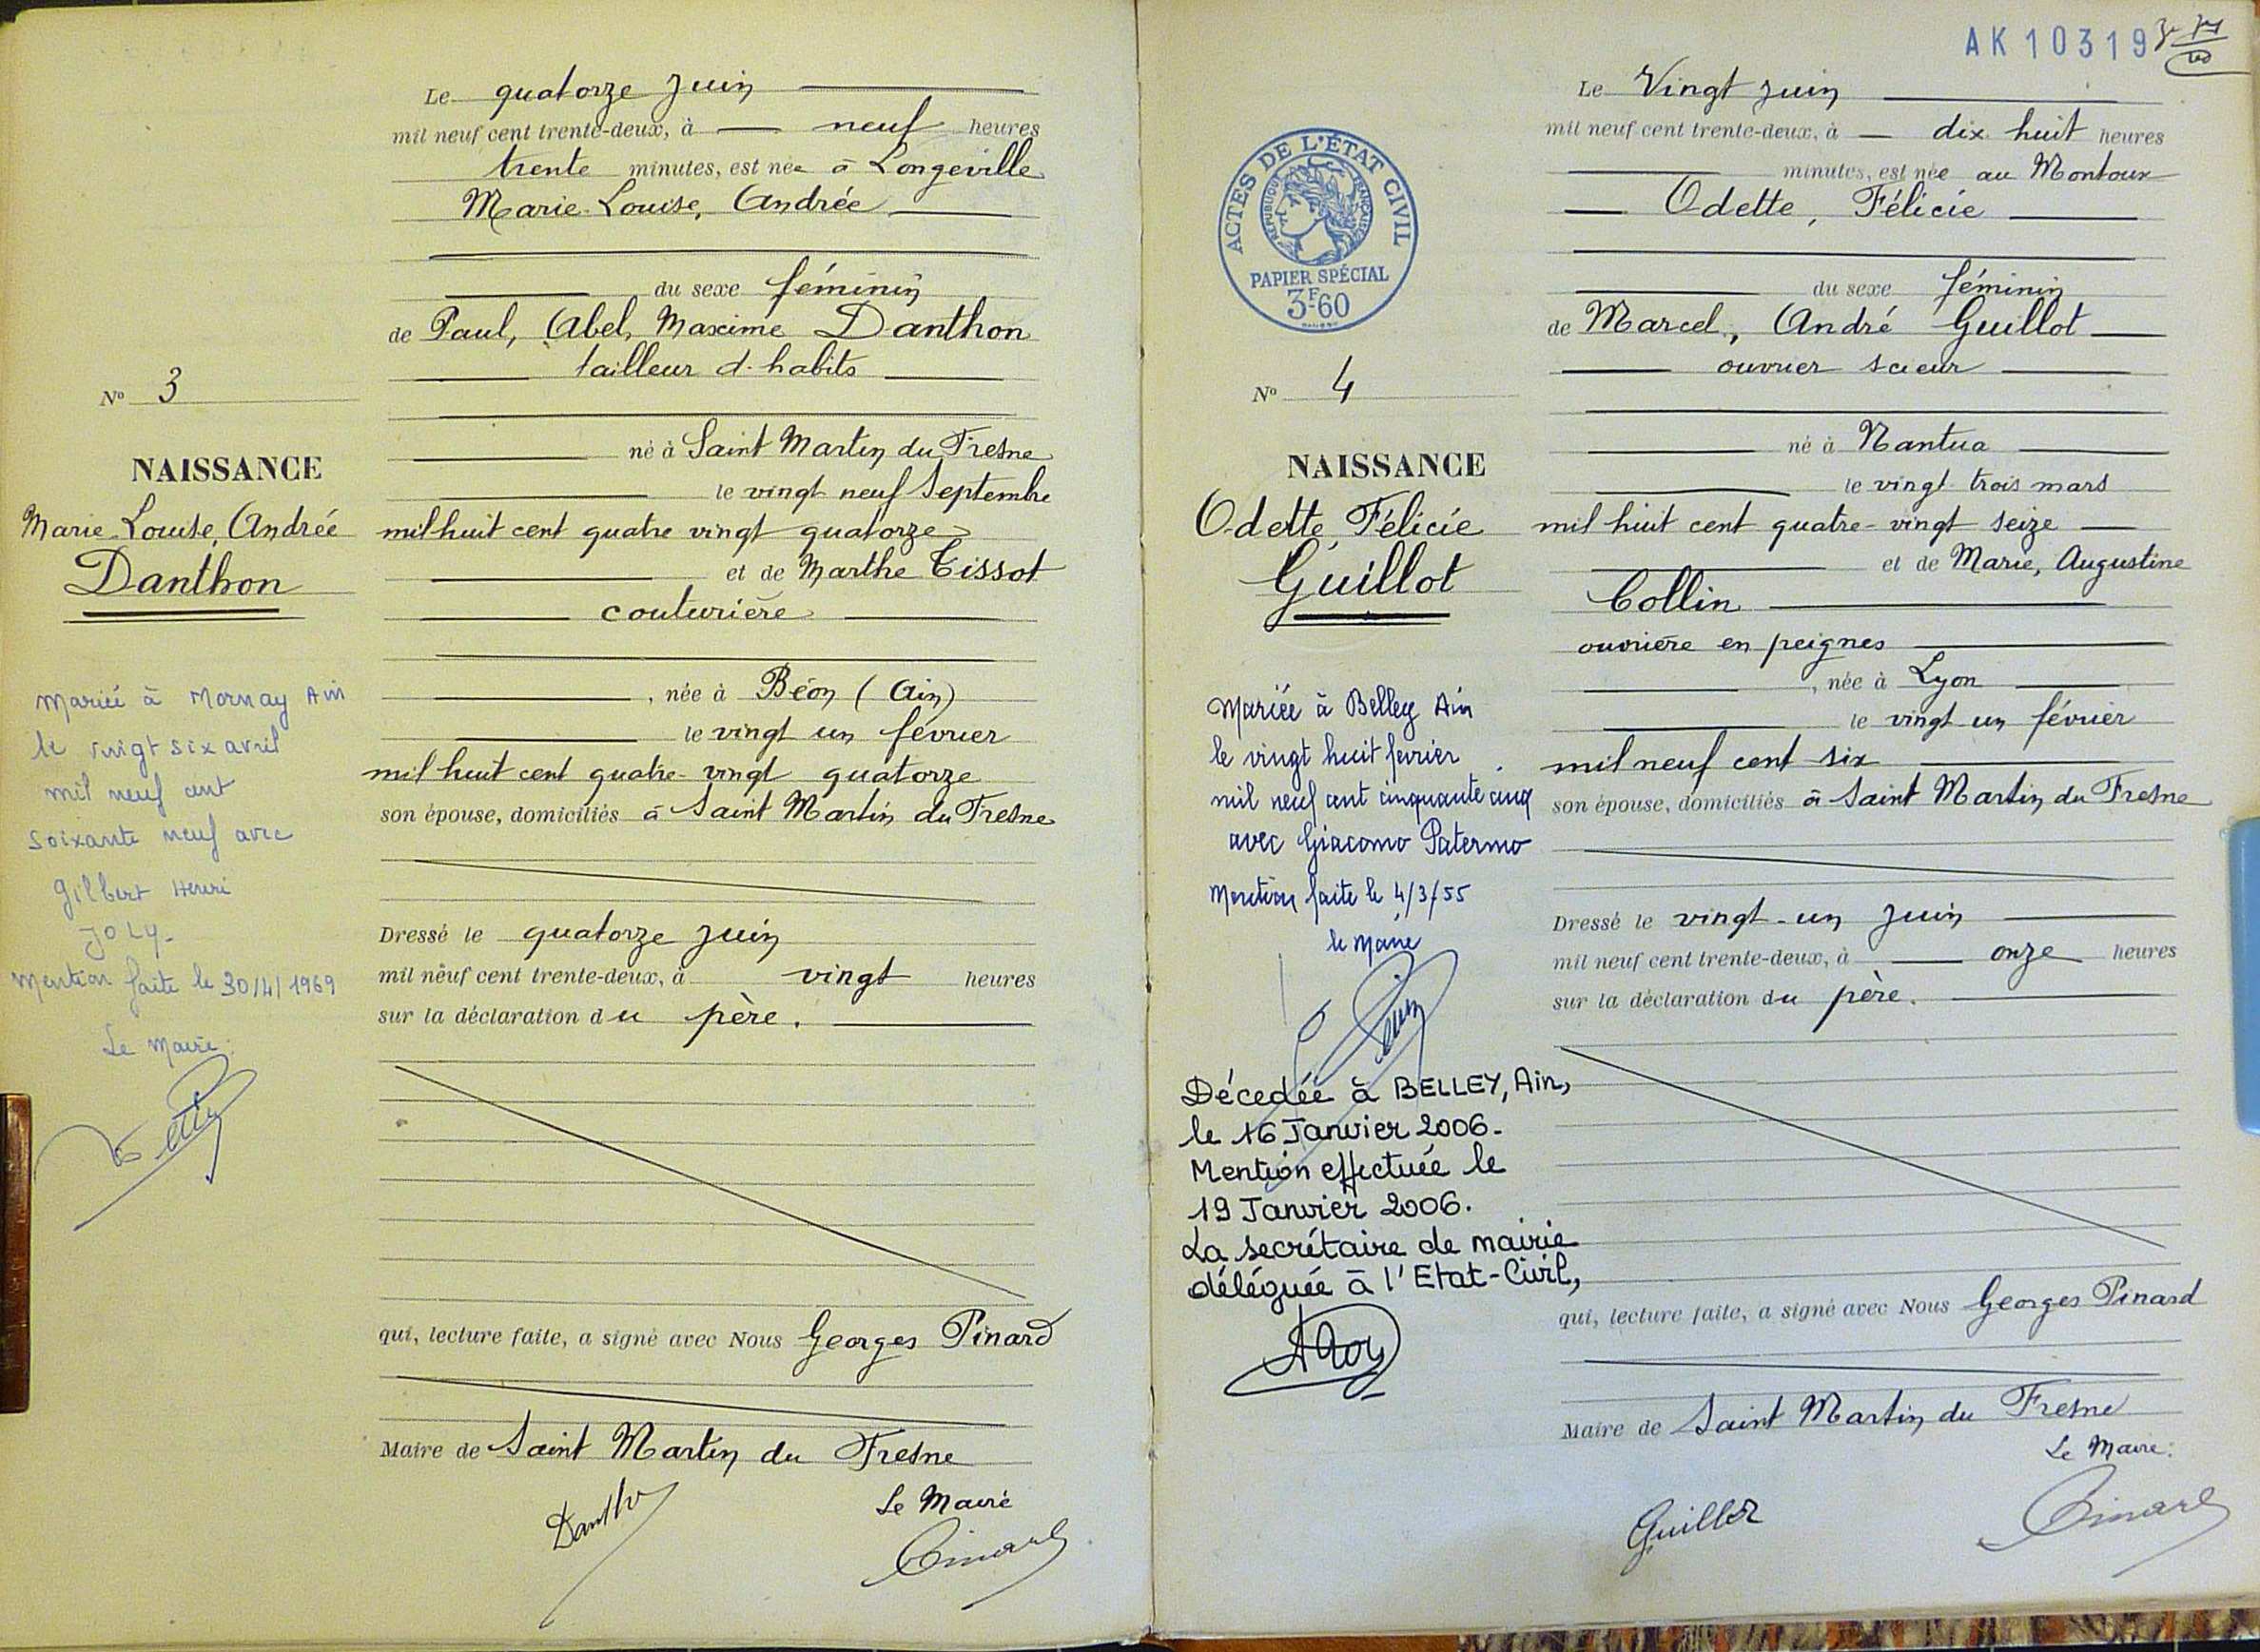 Le quatorze Juin
mil neuf cent trente-deux, à neuf heures
trente minutes, est née à Longeville
Marie-Louise, Andrée
du sexe féminin
de Paul, Abel, Maxime Danthon
tailleur d'habits
né à Saint Martin du Fresne
le vingt neuf Septembre
mil huit cent quatre vingt quatorze
et de Marthe Tissot
couturière
, née à Béon (Ain)
le vingt un février
mil huit cent quatre-vingt quatorze
son épouse, domiciliés à Saint Martin du Fresne
Dressé le quatorze Juin
mil neuf cent trente-deux, à vingt heures
sur la déclaration du père.
qui, lecture faite, a signé avec Nous Georges Pinard
Maire de Saint Martin du Fresne
Le Maire
Danthon
Pinard
No 3
NAISSANCE
Marie-Louise, Andrée
Danthon
Mariée à Mornay Ain
le vingt six avril
mil neuf cent
soixante neuf avec
Gilbert Henri
JOLY-
Mention faite le 30/4/1969
Le Maire:
AK 10319
Le Vingt Juin
mil neuf cent trente-deux, à dix huit heures
minutes, est née au Montoux
Odette, Félicie
du sexe féminin
de Marcel, André Guillot
ouvrier scieur
né à Nantua
le vingt trois mars
mil huit cent quatre-vingt seize
et de Marie, Augustine
Collin
ouvrière en peignes
, née à Lyon
le vingt un février
mil neuf cent six
son épouse, domiciliés à Saint Martin du Fresne
Dressé le vingt-un Juin
mil neuf cent trente-deux, à onze heures
sur la déclaration du père.
qui, lecture faite, a signé avec Nous Georges Pinard
Maire de Saint Martin du Fresne
Le Maire:
Guillot
Pinard
ACTES DE L'ÉTAT CIVIL
RÉPUBLIQUE FRANÇAISE
PAPIER SPÉCIAL
3F60
No 4
NAISSANCE
Odette, Félicie
Guillot
Mariée à Belley Ain
le vingt huit fevrier
mil neuf cent cinquante cinq
avec Giacomo Patermo
Mention faite le 4/3/55
le Maire
Décedée à BELLEY, Ain,
le 16 Janvier 2006-
Mention effectuée le
19 Janvier 2006.
La secrétaire de mairie
déléguée à l'Etat-Civil,